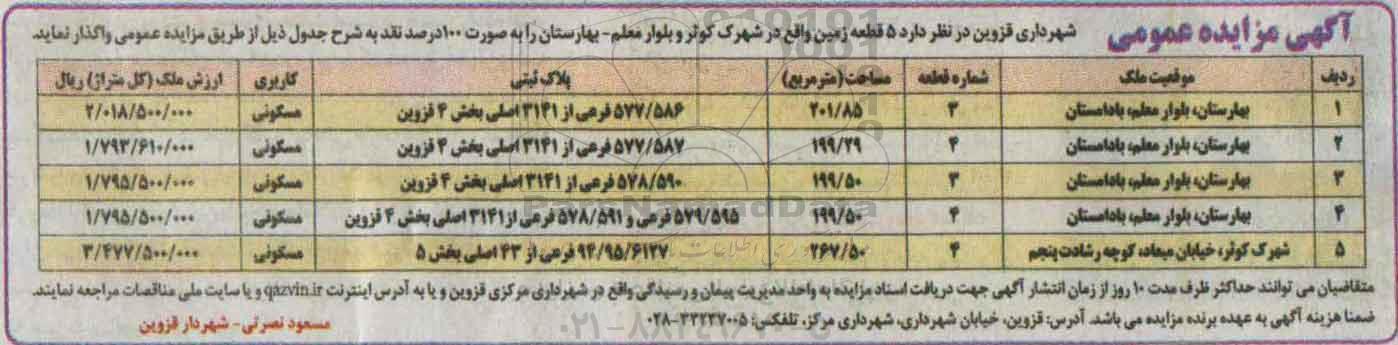 آگهی مزایده عمومی
شهرداری قزوین در نظر دارد ۵ قطعه زمین واقع در شهرک کوثر و بلوار معلم - بهارستان را به صورت ۱۰۰درصد نقد به شرح جدول ذیل از طریق مزایده عمومی واگذار نماید.
ردیف موقعیت ملک شماره قطعه مساحت (مترمربع) پلاک ثبتی کاربری ارزش ملک (کل متراژ) ریال
۱ بهارستان، بلوار معلم، بادامستان ۳ ۲۰۱/۸۵ ۵۷۷/۵۸۶ فرعی از ۳۱۴۱ اصلی بخش ۴ قزوین مسکونی ۲/۰۱۸/۵۰۰/۰۰۰
۲ بهارستان، بلوار معلم، بادامستان ۴ ۱۹۹/۲۹ ۵۷۷/۵۸۷ فرعی از ۳۱۴۱ اصلی بخش ۴ قزوین مسکونی ۱/۷۹۳/۶۱۰/۰۰۰
۳ بهارستان، بلوار معلم، بادامستان ۳ ۱۹۹/۵۰ ۵۷۸/۵۹۰ فرعی از ۳۱۴۱ اصلی بخش ۴ قزوین مسکونی ۱/۷۹۵/۵۰۰/۰۰۰
۴ بهارستان، بلوار معلم، بادامستان ۴ ۱۹۹/۵۰ ۵۷۹/۵۹۵ فرعی و ۵۷۸/۵۹۱ فرعی از ۳۱۴۱ اصلی بخش ۴ قزوین مسکونی ۱/۷۹۵/۵۰۰/۰۰۰
۵ شهرک کوثر، خیابان میعاد، کوچه رشادت پنجم ۴ ۲۶۷/۵۰ ۹۴/۹۵/۶۱۲۷ فرعی از ۴۳ اصلی بخش ۵ مسکونی ۳/۴۷۷/۵۰۰/۰۰۰
متقاضیان می توانند حداکثر ظرف مدت ۱۰ روز از زمان انتشار آگهی جهت دریافت اسناد مزایده به واحد مدیریت پیمان و رسیدگی واقع در شهرداری مرکزی قزوین و یا به آدرس اینترنت qazvin.ir و یا سایت ملی مناقصات مراجعه نمایند.
ضمنا هزینه آگهی به عهده برنده مزایده می باشد. آدرس: قزوین، خیابان شهرداری، شهرداری مرکز. تلفکس: ۳۳۲۳۷۰۰۵-۰۲۸
مسعود نصرتی - شهردار قزوین
ParsNamadData